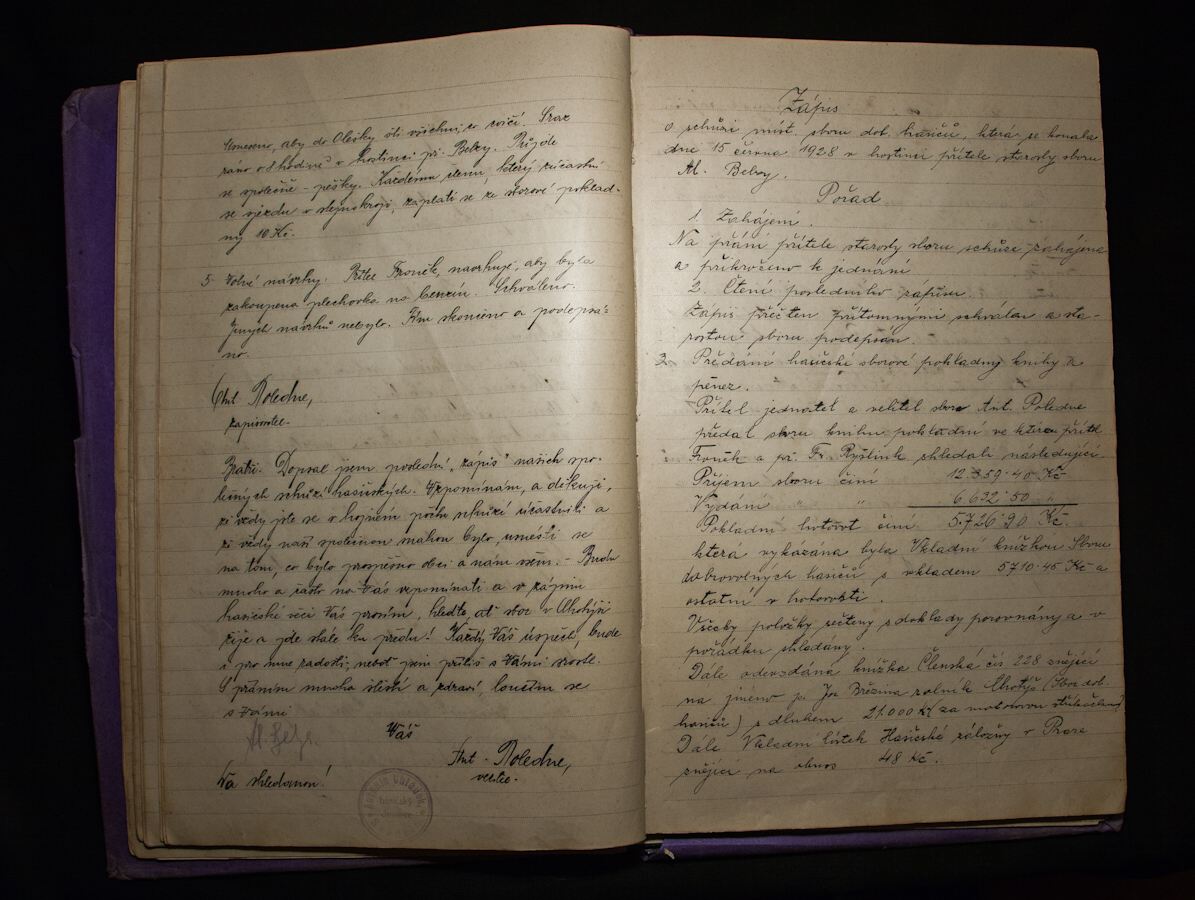 usneseno, aby do Olešky šli všichni, co cvičí. Sraz
ráno o 8 hodině v hostinci př. Beby. Půjde
se společně - pěšky. Každému členu, který zúčastní
se sjezdu v stejnokroji, zaplatí se ze sborové poklad-
ny 10 Kč.
5 Volné návrhy: Přítel Froněk, navrhuje, aby byla
zakoupena plechovka na benzin. Schváleno.
Jiných návrhů nebylo. Tím skončeno a podepsá-
no.
Ant. Poledne,
zapisovatel.
Bratři. Dopsal jsem poslední „zápis" našich spo-
lečných schůzí hasičských. Vzpomínám, a děkuji,
že vždy jste se v hojném počtu schůzí účastnili a
že vždy naší společnou snahou bylo, usnésti se
na tom, co bylo prospěšno obci a nám všem. - Budu
mnoho a rád na Vás vzpomínati a v zájmu
hasičské věci Vás prosím, hleďte, ať sbor v
žije a jde stále ku předu! Každý Váš úspěch, bude
i pro mne radostí, neboť jsem příliš s Vámi srostl.
S přáním mnoho štěstí a zdraví, loučím se
s Vámi
Váš
Ant. Poledne,
velitel.
Na shledanou!
Zápis
o schůzi míst. sboru dob. hasičů, která se konala
dne 15 června 1928 v hostinci přítele starosty sboru
Al. Beby.
Pořad
1. Zahájení.
Na přání přítele starosty sboru schůze zahájena
a přikročeno k jednání
2. Čtení posledního zápisu.
Zápis přečten přítomnými schválen a sta-
rostou sboru podepsán.
3. Předání hasičské sborové pokladny knihy a
peněz.
Přítel jednatel a velitel sboru Ant. Poledne
předal sboru knihu pokladní ve které přítel
Froněk a př. Fr. Ryšlink shledali následující.
Příjem sboru činí 12.359·40 Kč
Vydání " " 6 632·50 "
Pokladní hotovost činí 5.726·90 Kč.
která vykázána byla Vkladní knížkou Sboru
dobrovolných hasičů s vkladem 5710·45 Kč a
ostatní v hotovosti.
Všecky položky sečteny s doklady porovnány a v
pořádku shledány.
Dále odevzdána knížka Členská čís 228 znějící
na jméno p. Jos Březina rolník Chotýš (Sbor dob.
hasičů) s dluhem 21.000 Kč za motorovou stříkačku
Dále Vkladní lístek Hasičské záložny v Praze
znějící na obnos 48 Kč.